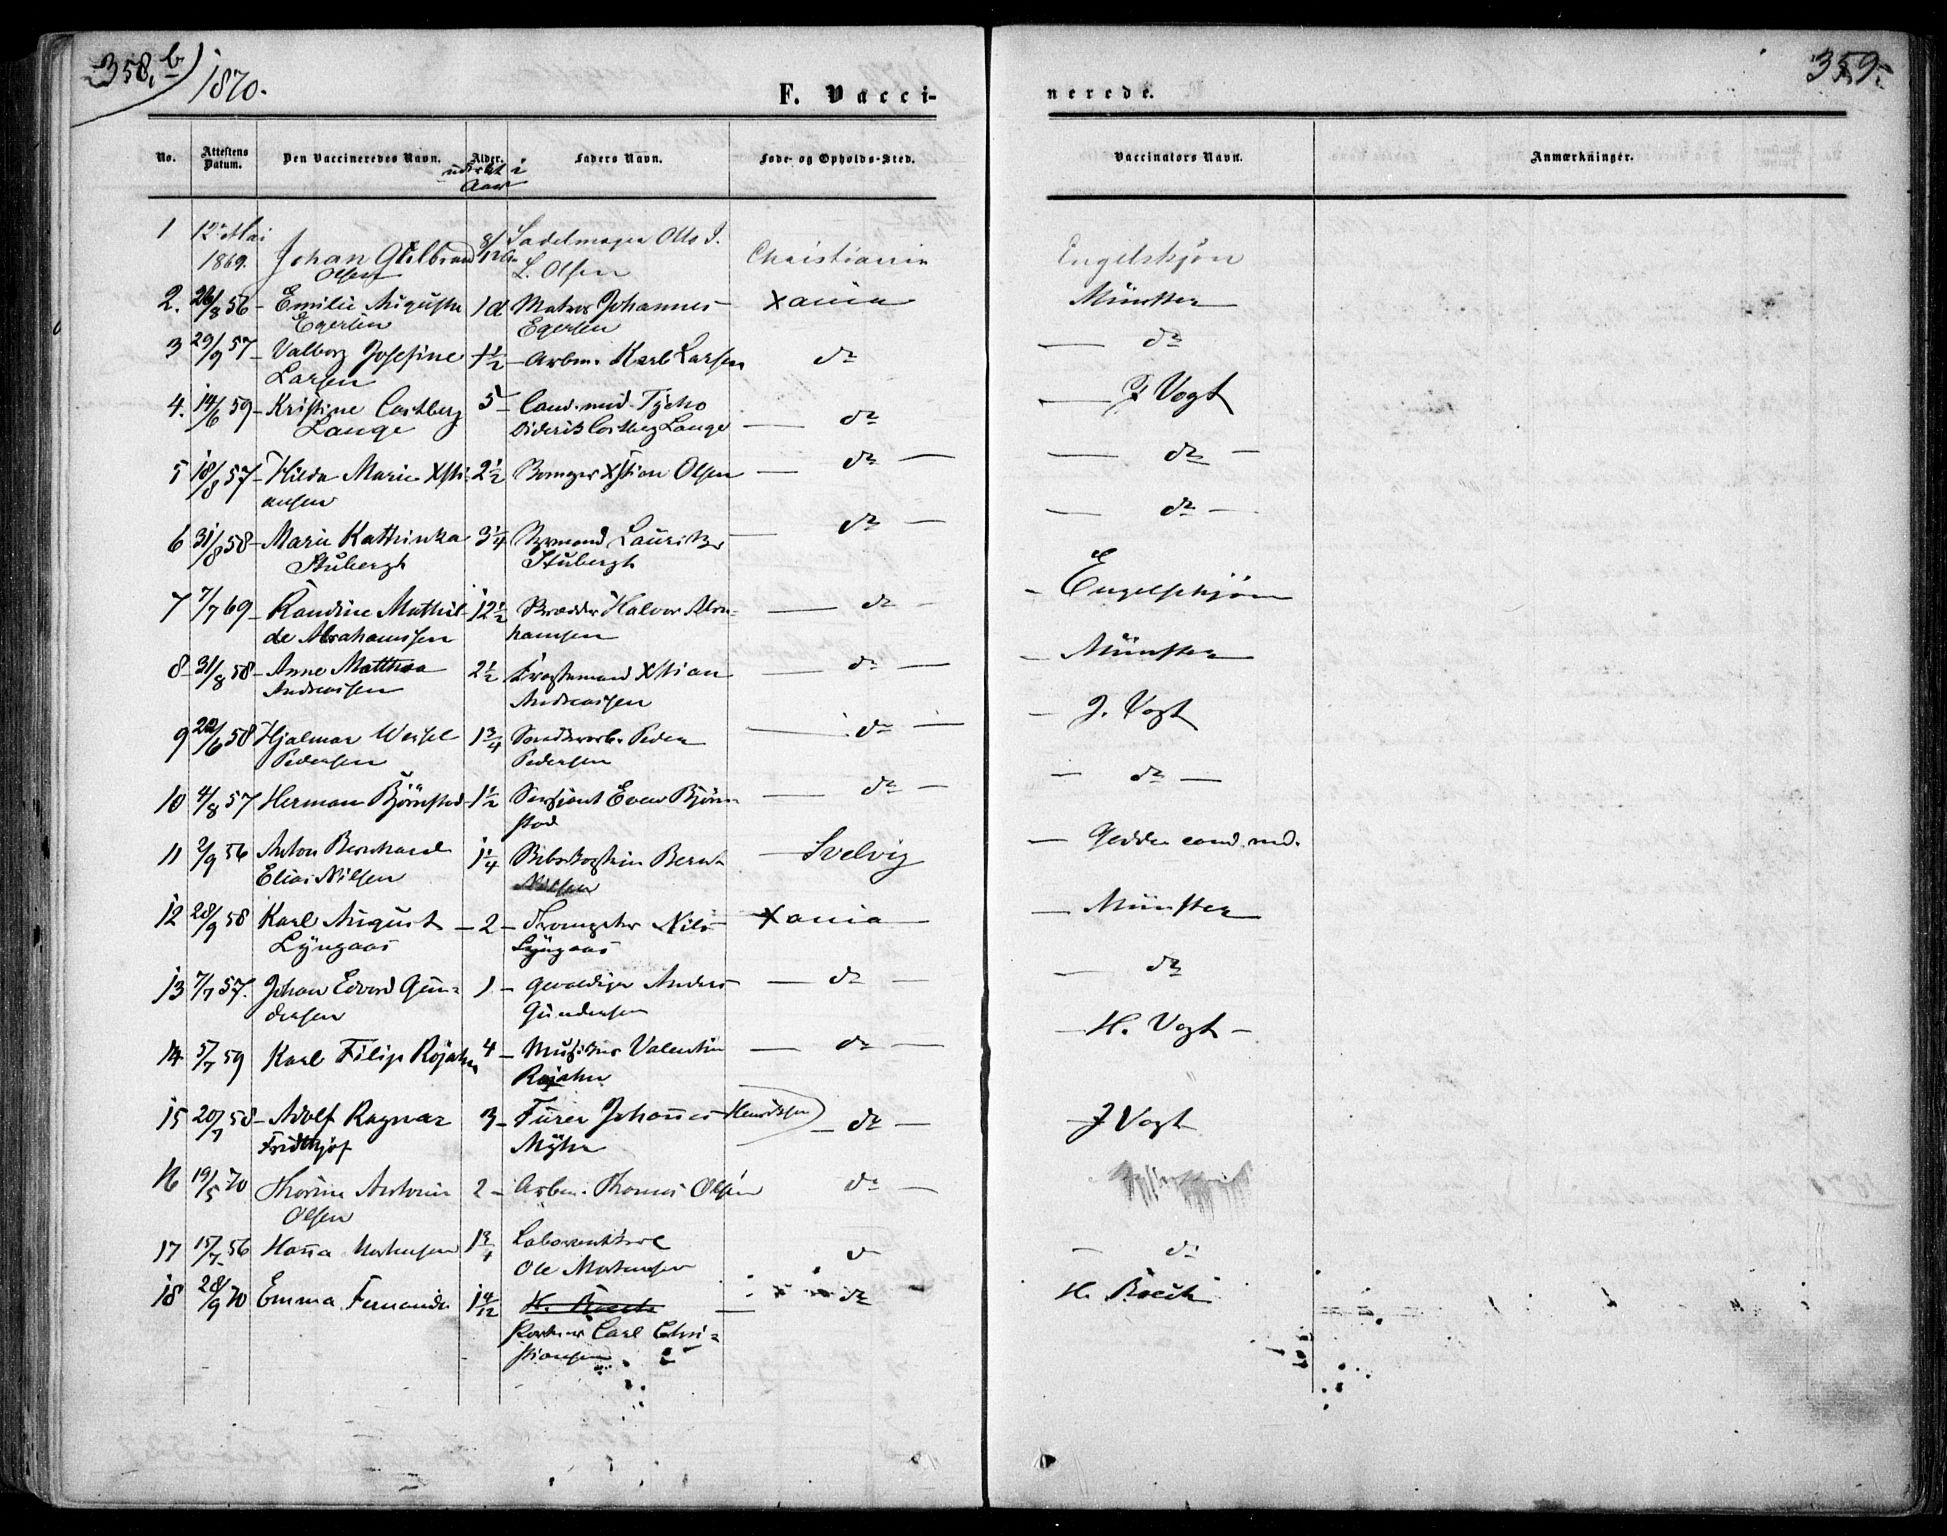 358, b
1870.
F. Vacci-
nerede.
359.
No.
Attestens Datum.
Den Vaccineredes Navn.
Alder.
udirkt i Aar
Faders Navn.
Føde- og Opholds-Sted.
Vaccinators Navn.
Anmærkninger.
1 12te Mai Sadelmager Otto J.
1869. Johan Gulbrand 8/12 L. Olsen Christiania Engelskjøn
Olsen
2. 26/8 56 – Emilie Auguste 1 Matros Johannes Xania Münster
Egersen Egersen
3 29/9 57 – Valborg Josefine 1½ – Arbm. Karl Larsen do do
Larsen
4. 14/6 59 – Kristine Castberg 5 – Cand. med. Tycho J Vogt
Lange Diderik Castberg Lange – do
5 18/8 57 – Hilda Marie Xsti- 2½ Xstian Olsen – do – – do –
ansen
6 31/8 58 – Marie Kathinka 3¼ Lauritz – do – – do –
Stubergh Stubergh
7 7/7 69 – Randine Mathil- 12½ Skrædder Halvor Abra- – do – – Engelskjøn
de Abrahamsen hamsen
8 – 31/8 58 – Anne Matthea 2½ Xstian – do – – Münster
Andreassen Andreassen
9 22/6 58 Hjalmar Weisel 1¾ Peder – do – – J. Vogt
Pedersen Pedersen
10 4/8 57 Herman Bjørnstad – 1½ Sersjant Even Bjørn- – do – – do –
stad
11 2/9 56 Anton Bernhard 1¼ Bernt – Svelvig – Gedde cand. med.
Elias Nilsen Nilsen
12 28/9 58 Karl August – 2 – Nils Xania – Münster
Lyngaas Lyngaas
13 7/7 57. Johan Edvard Gun- 1 – Gevaldiger Anders – do – – do
dersen Gundersen
14 5/7 59 Karl Filip Rojahn 4 – Musikus Valentin – do – – H. Vogt –
Rojahn
15 20/7 58 – Adolf Ragnar 3 – Furer Johannes Henriksen – do – – J Vogt
Fridthjof Myhre
16 19/5 70 Thorine Antonie 2 – Arbm. Thomas Olsen do –
Olsen
17 15/7 56 Hanna Mortensen 1¾ Laborantkarl do – do
Ole Mortensen
18 28/9 70 Emma Fernanda 1 4/12 H. Boeck – do H. Boeck
Carl Chri-
stiansen